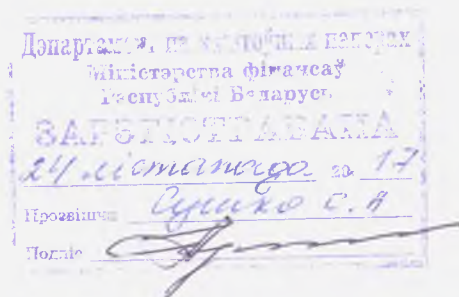 Дэпартамент па каштоўных паперах
Міністэрства фінансаў
Рэспублікі Беларусь
ЗАРЭГІСТРАВАНА
24 лістапада 20 17
Прозвішча С.А
Подпіс